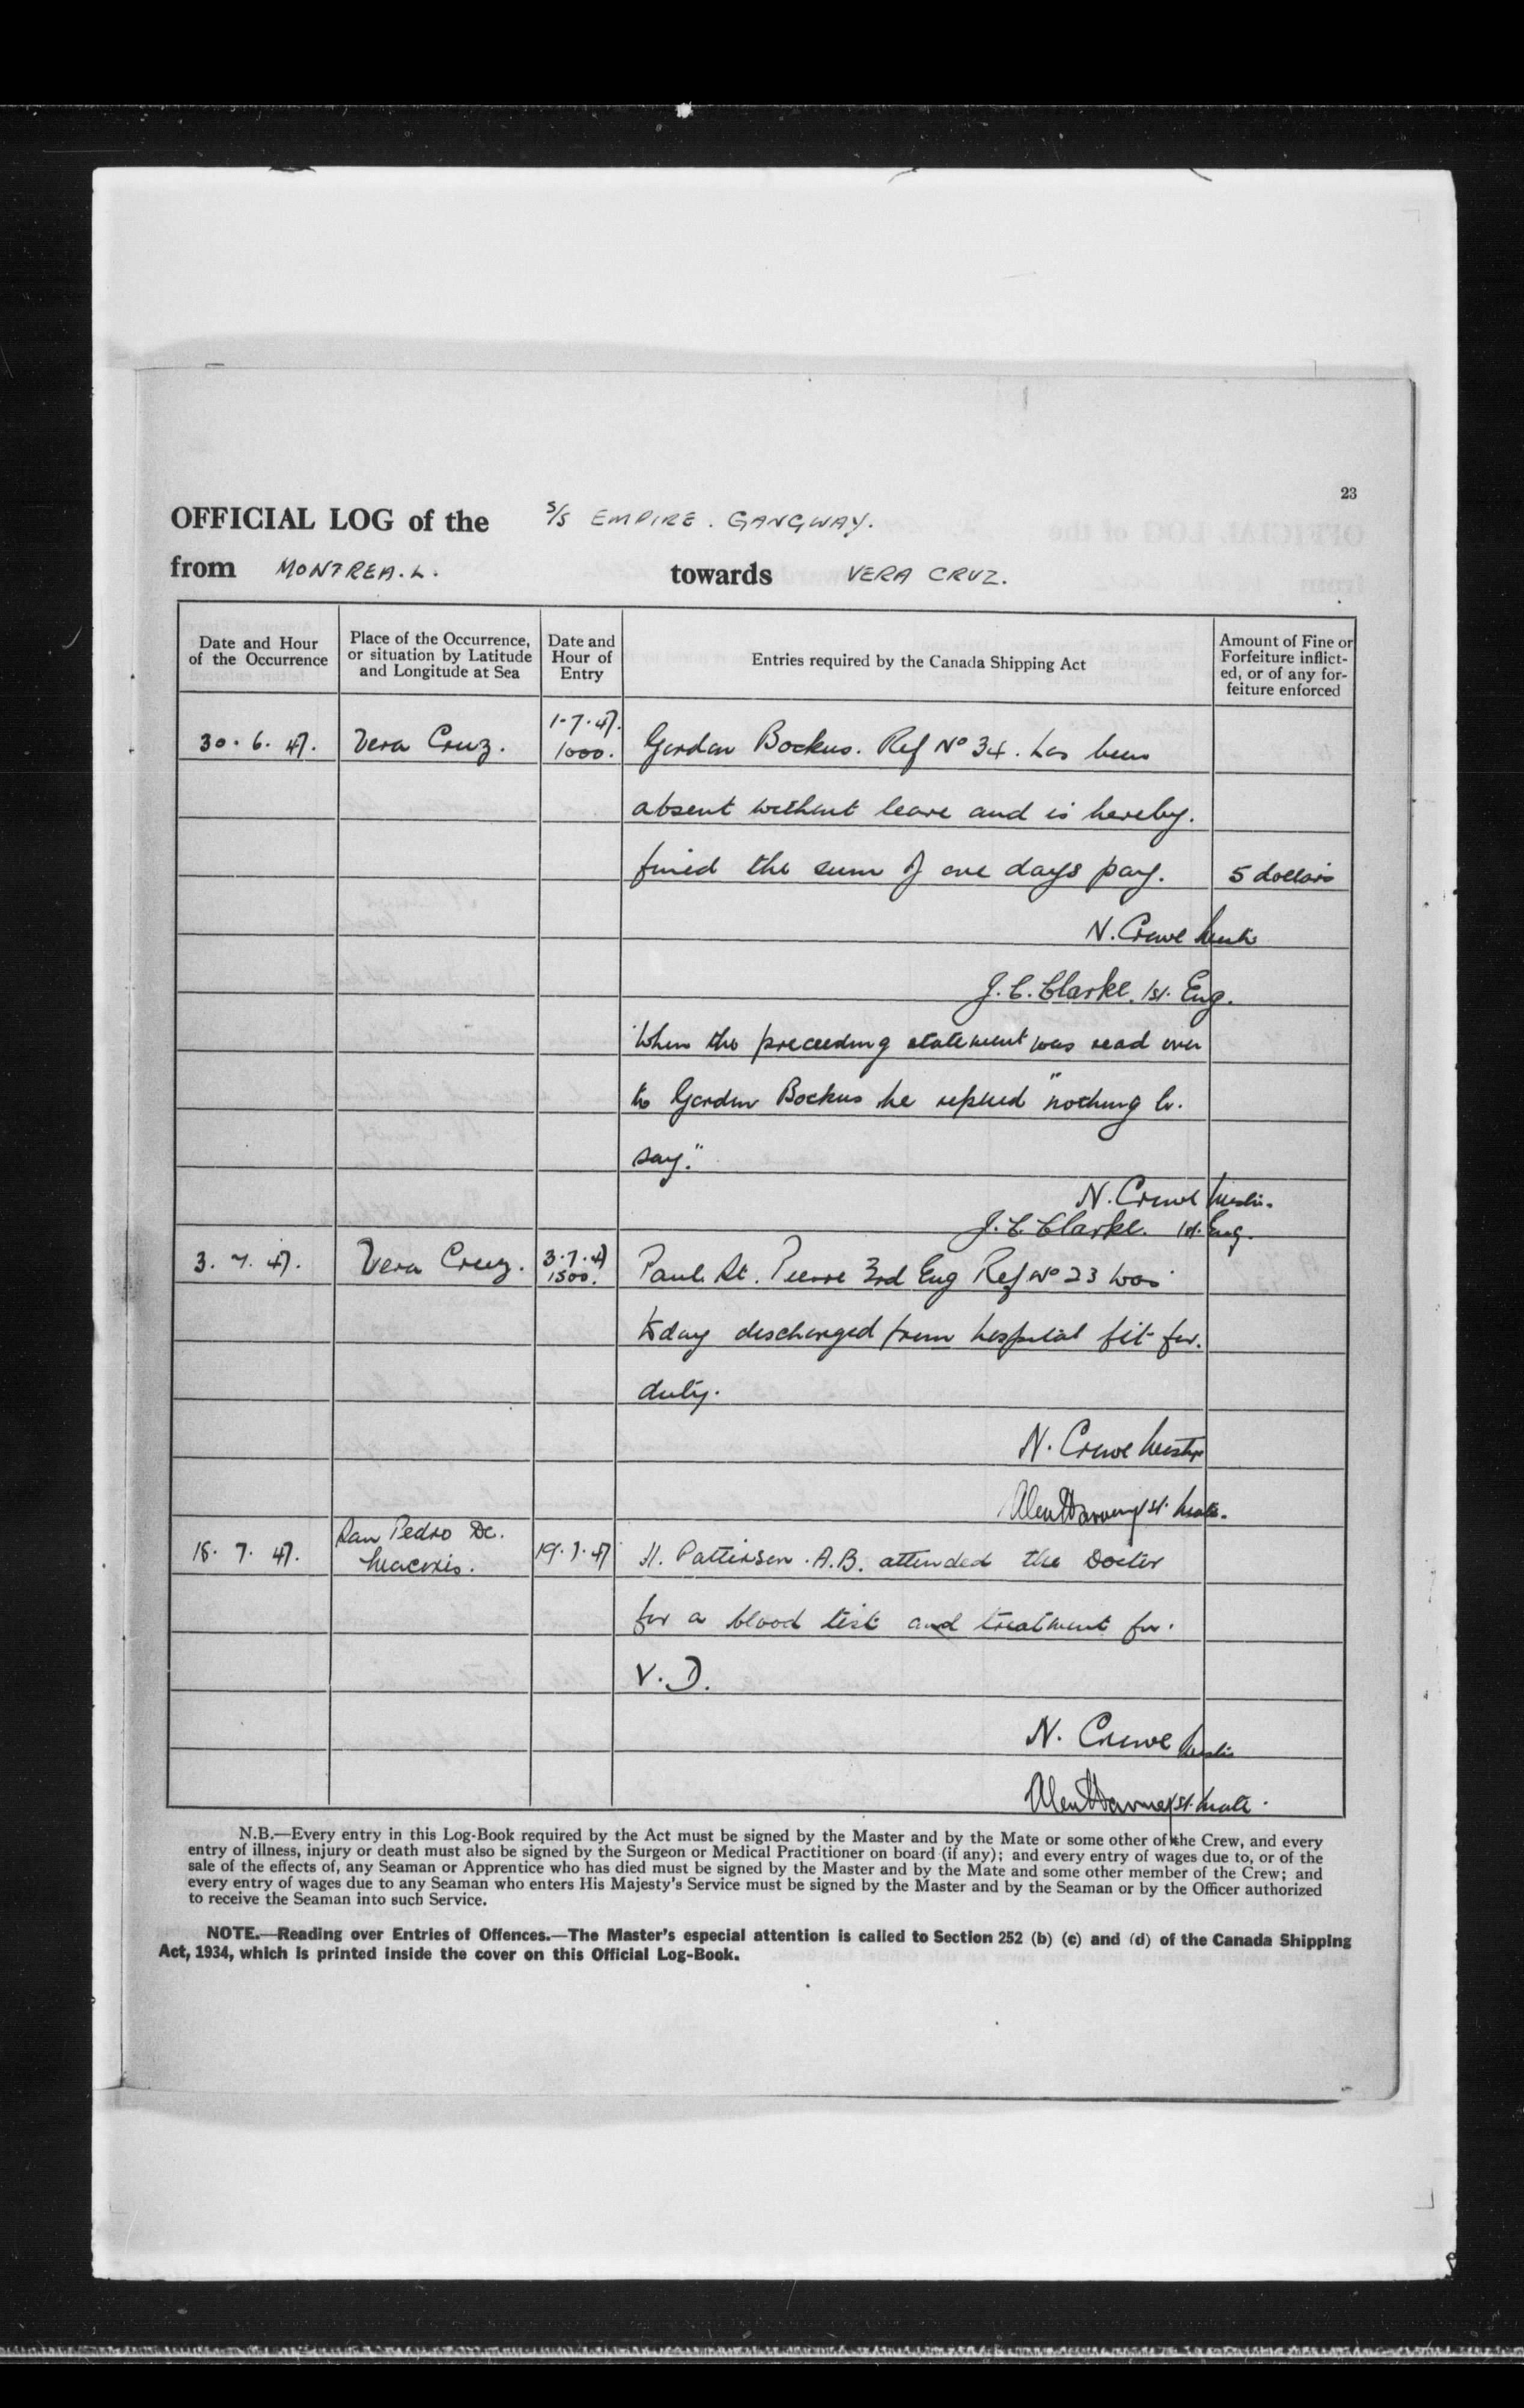 23
OFFICIAL LOG of the S/S EMPIRE. GANGWAY.
from MONTREA.L. towards VERA CRUZ.
Date and Hour of the Occurrence
Place of the Occurrence, or situation by Latitude and Longitude at Sea
Date and Hour of Entry
Entries required by the Canada Shipping Act
Amount of Fine or Forfeiture inflict-ed, or of any for-feiture enforced
1.7.47.
30.6.47. Vera Cruz. 1000. Gordon Bockus. Ref No 34. has been
absent without leave and is hereby.
fined the sum of one days pay. 5 dollars
N. Crewe Master
J.C. Clarke. 1st. Eng.
When the preceeding statement was read over
to Gordon Bockus he replied "nothing to.
say."
N. Crewe Master.
J.C. Clarke. 1st. Eng.
3.7.47. Vera Cruz. 3.7.47 1500. Paul St. Pierre 3rd Eng Ref No 23 was
today discharged from hospital fit for.
duty.
N. Crewe Master
1st. Mate.
San Pedro De.
18.7.47. Macoris. 19.7.47 H. Pattersen. A.B. attended the Doctor
for a blood test and treatment for.
V.D.
N. Crewe Master
1st. Mate.
N.B.—Every entry in this Log-Book required by the Act must be signed by the Master and by the Mate or some other of the Crew, and every
entry of illness, injury or death must also be signed by the Surgeon or Medical Practitioner on board (if any); and every entry of wages due to, or of the
sale of the effects of, any Seaman or Apprentice who has died must be signed by the Master and by the Mate and some other member of the Crew; and
every entry of wages due to any Seaman who enters His Majesty's Service must be signed by the Master and by the Seaman or by the Officer authorized
to receive the Seaman into such Service.
NOTE.—Reading over Entries of Offences.—The Master's especial attention is called to Section 252 (b) (c) and (d) of the Canada Shipping
Act, 1934, which is printed inside the cover on this Official Log-Book.